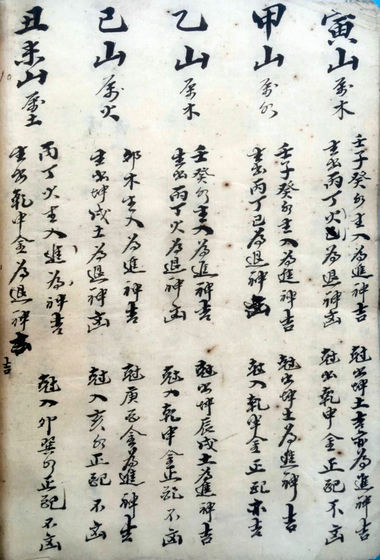 寅山屬木
壬子癸水主入為進神吉 尅出坤土為進神吉
生出丙丁火為退神凶 尅出乾申金正配不凶
甲山屬水
壬子癸水主入為進神吉 尅出坤土為進神吉
生出丙丁巳為退神凶 尅入乾申金正配不吉
乙山屬木
壬癸水主入為進神吉 尅出坤辰戌土為進神吉
生出丙丁火為退神凶 尅入乾申金正配不凶
巳山屬火
卯木生入為進神吉 尅庚酉金為進神吉
生出坤戌土為退神凶 尅入亥水正配不凶
丑未山屬土
丙丁火主入進為神吉
生出乾申金為退神吉 尅入卯巽水正配不凶
吉